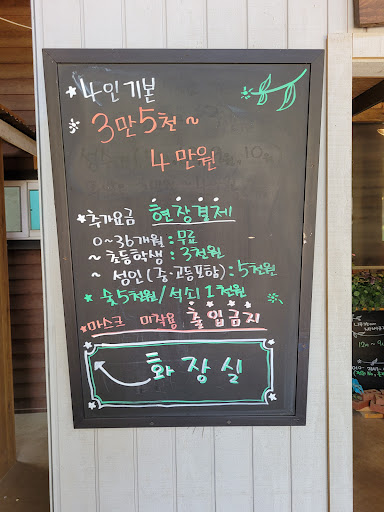 4인 기본
3만5천 ~
4만원
추가요금 현장결제
0~36개월 : 무료
~ 초등학생 : 3천원
~ 성인(중·고등포함) : 5천원
숯5천원/석쇠1천원
마스크 미착용 출입금지
화장실